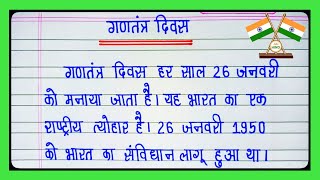 गणतंत्र दिवस
गणतंत्र दिवस हर साल 26 जनवरी
को मनाया जाता है। यह भारत का एक
राष्ट्रीय त्योहार है। 26 जनवरी 1950
को भारत का संविधान लागू हुआ था।